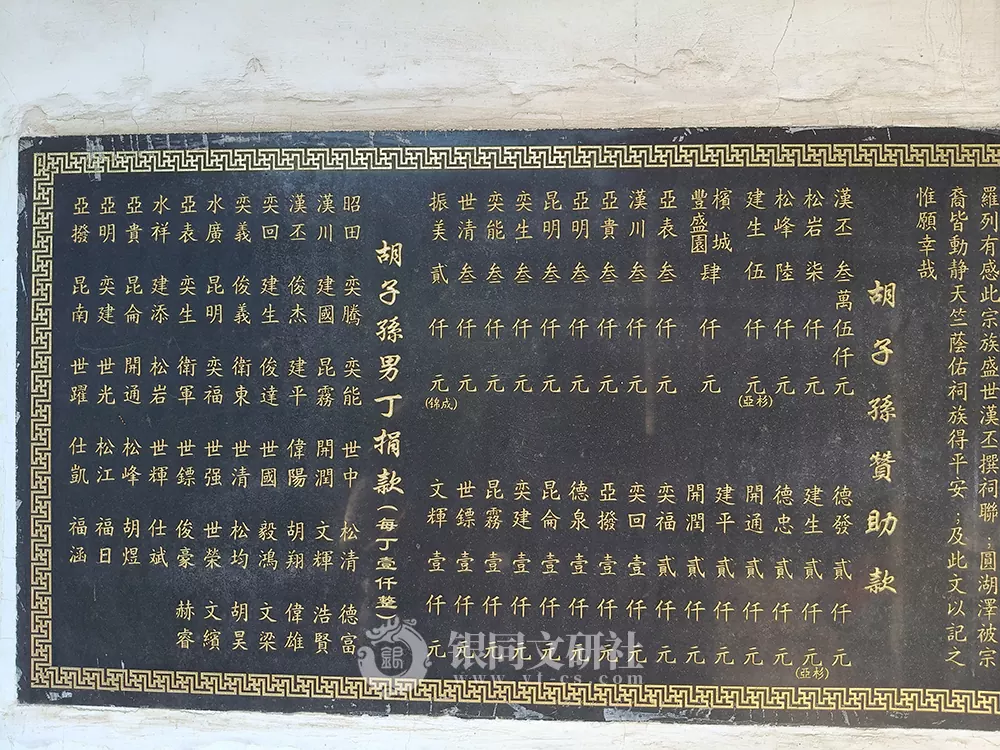 羅列有感此宗族盛世漢丕撰祠聯；圓湖澤被宗
裔皆動静天竺蔭佑祠族得平安；及此文以記之
惟願幸哉
胡子孫贊助款
漢丕 叁萬伍仟元
松岩 柒仟元
松峰 陸仟元
建生 伍仟元(亞杉)
檳城豐盛園 肆仟元
亞表 叁仟元
漢川 叁仟元
亞貴 叁仟元
亞明 叁仟元
昆明 叁仟元
奕生 叁仟元
奕能 叁仟元
世清 叁仟元
振美 貳仟元(錦成)
德發 貳仟元
建生 貳仟元(亞杉)
德忠 貳仟元
開通 貳仟元
建平 貳仟元
開潤 貳仟元
奕福 貳仟元
奕回 壹仟元
亞撥 壹仟元
德泉 壹仟元
昆侖 壹仟元
奕建 壹仟元
昆霧 壹仟元
世鏢 壹仟元
文輝 壹仟元
胡子孫男丁捐款(每丁壹仟整)
昭田 奕騰 奕能 世中 松清 德富
漢川 建國 昆霧 開潤 文輝 浩賢
漢丕 俊杰 建平 偉陽 胡翔 偉雄
奕回 建生 俊達 世國 毅鴻 文梁
奕義 俊義 衛東 世清 松均 胡昊
水廣 昆明 奕福 世强 世榮 文繽
亞表 奕生 衛軍 世鏢 俊豪 赫睿
水祥 建添 松岩 世輝 仕斌
亞貴 昆侖 開通 松峰 胡煜
亞明 奕建 世光 松江 福日
亞撥 昆南 世躍 仕凱 福涵
银同文研社
www.yt-cs.com